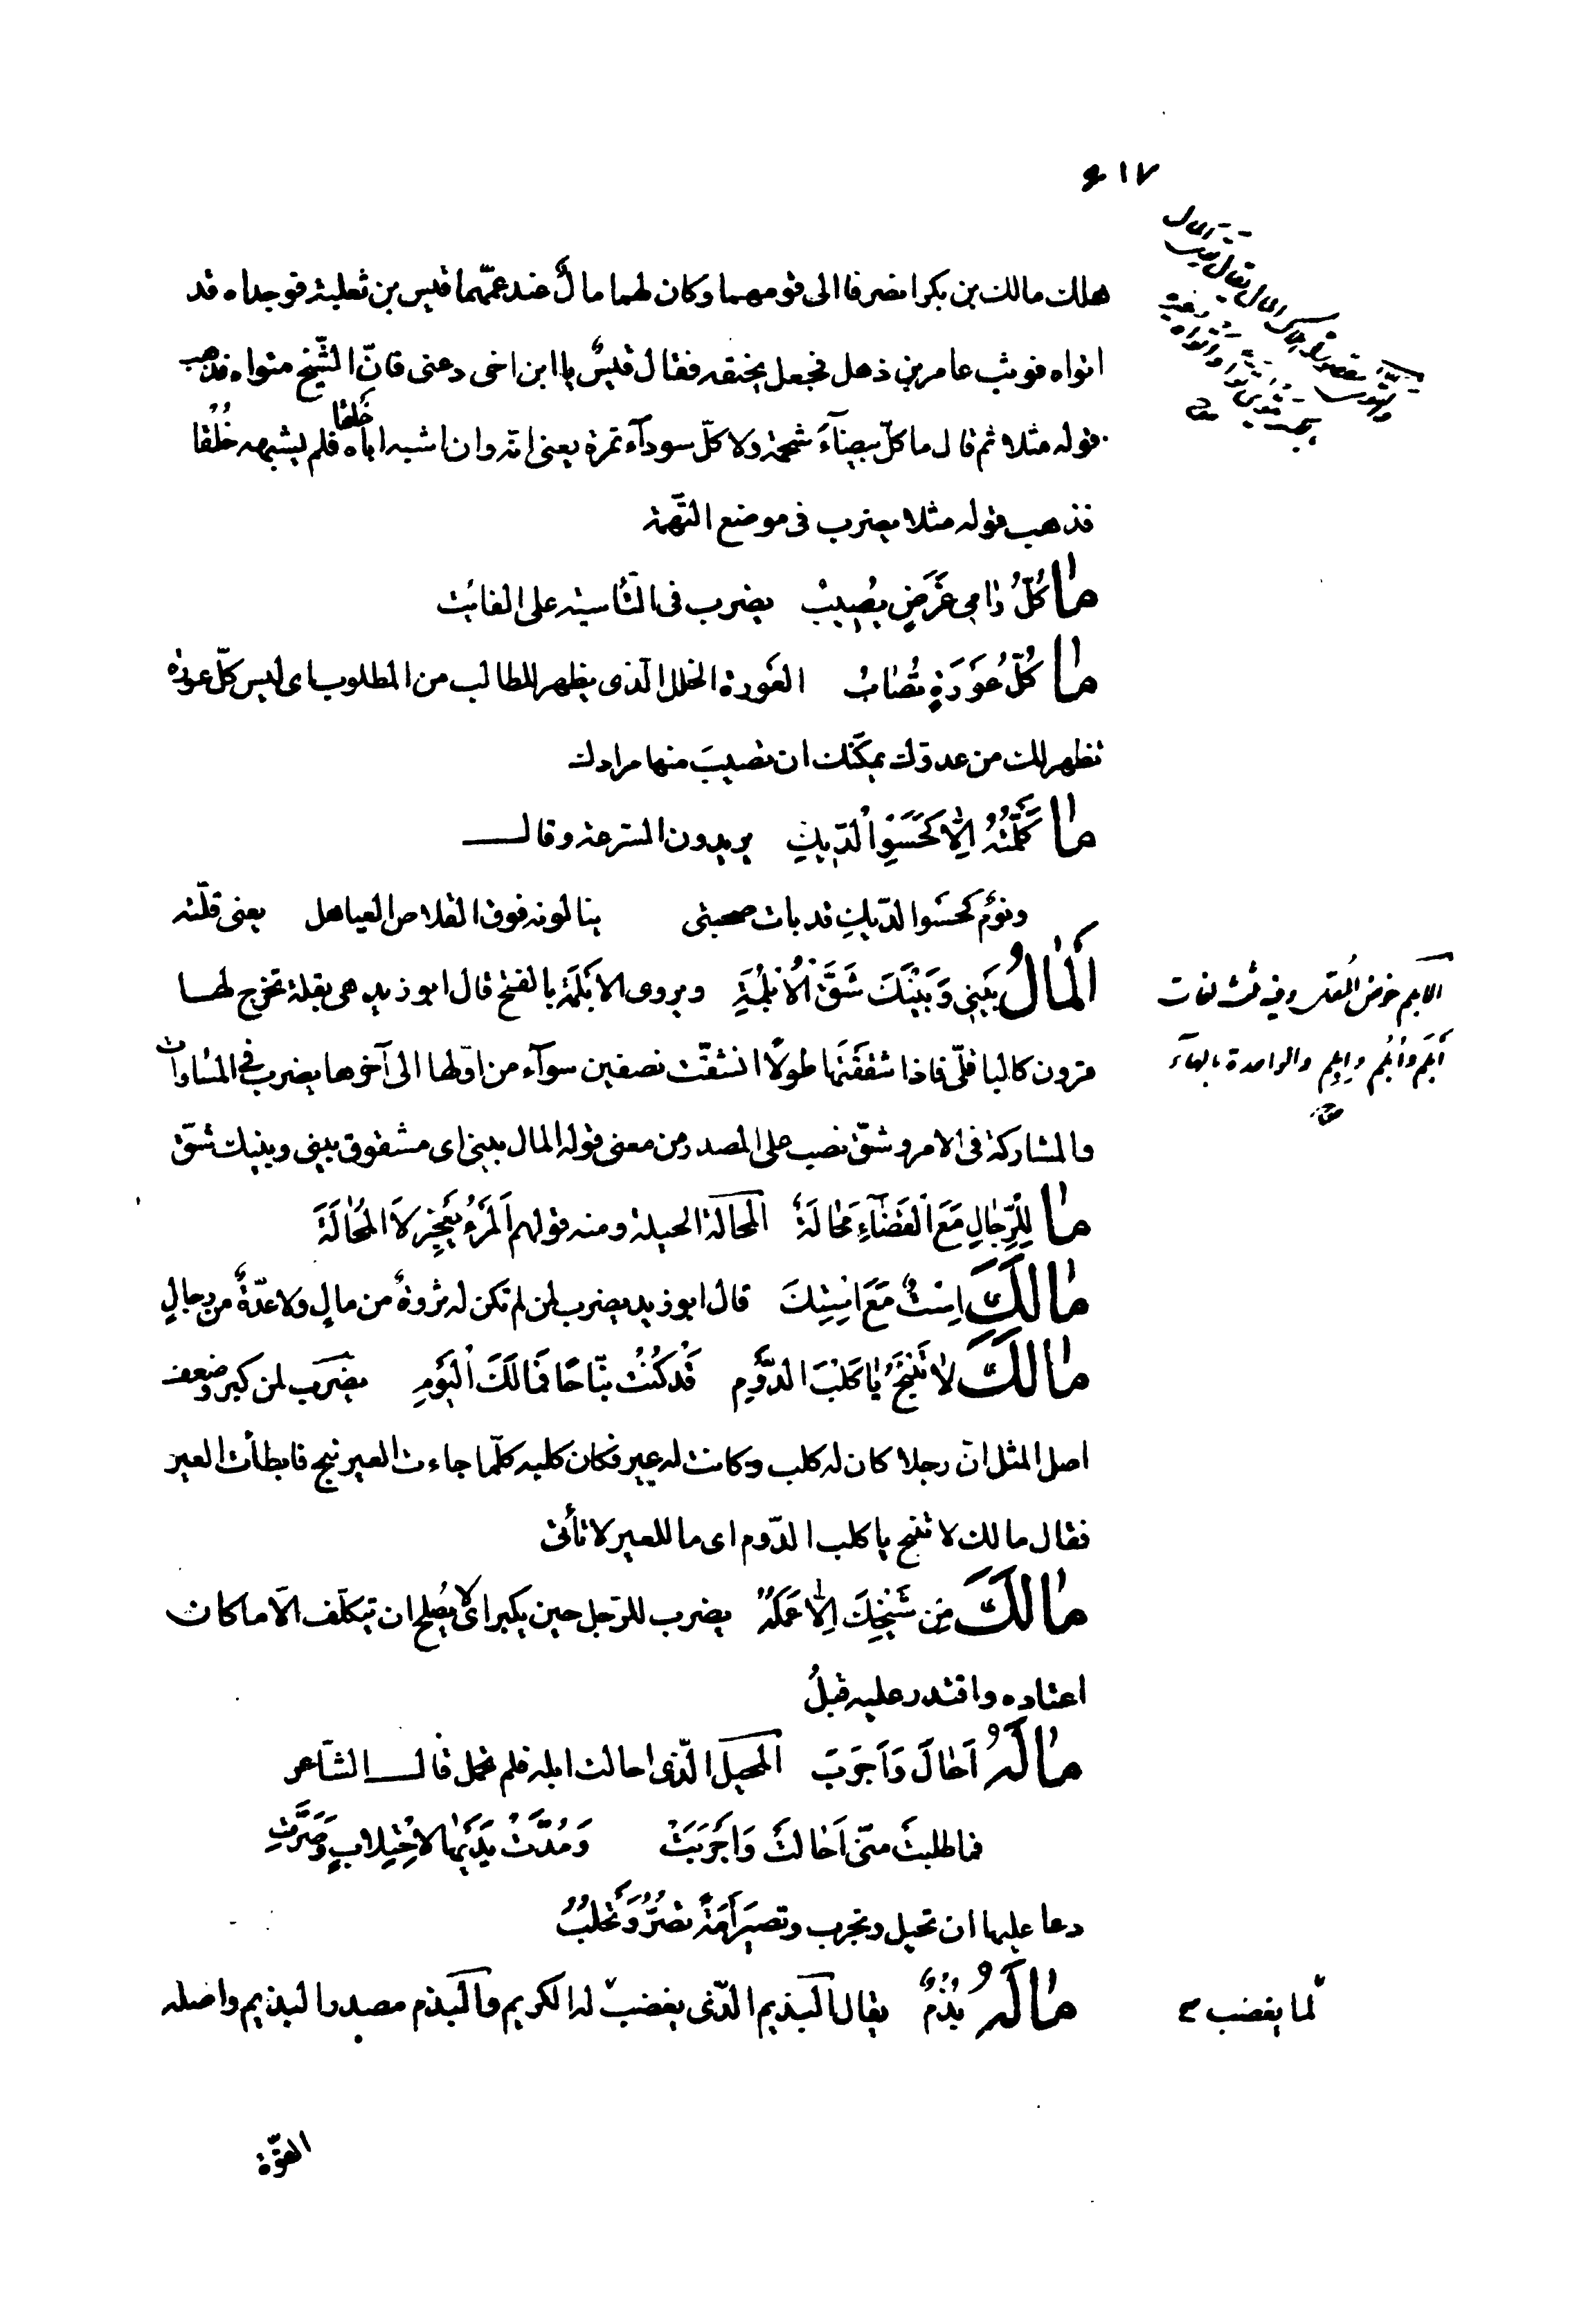 ٤١٧
هلك مالك بن بكر انصرفا الى قومهما وكان لهما مالٌ عند عمّهما قيس بن ثعلبة فوجداه قد
اتواه فوثب عامر بن ذهل فجعل يخنقه فقال قيسٌ يا ابن اخى دعنى فانّ الشّيخ متواه فذهب
قوله مثلا ثم قال ما كلّ بيضآءَ شحمة ولا كلّ سودآء تمرة يعنى انّه وان اشبه اباه خَلقا فلم يشبهه خُلُقا
فذهب قوله مثلا يضرب فى موضع التّهمة
مَا كُلُّ رَامِي غَرَضٍ يُصِيبُ يضرب فى التّأسية على الفائت
مَا كُلُّ عَوْرَةٍ تُصَابُ العَورة الخلل الّذى يظهر للطالب من المطلوب اى ليس كلّ عورة
تظهر لك من عدوّك يمكّنك ان تصيبَ منها مرادك
مَا كَلَّمْتُهُ اِلَّا كَحَسْوِ الدِّيكِ يريدون السّرعة وقال
ونومٌ كحسو الدّيك قد بات صحبتى ينالونه فوق القلاص العياهل يعنى قلّته
اَلْمَالُ بَيْنِي وَبَيْنَكَ شَقَّ الْاُبْلُمَةِ ويروى الابلَمَة بالفتح قال ابو زيد هى بقلة تخرج لها
قرون كالباقلّى فاذا شققْتَها طولًا انشقّت نصفين سوآء من اوّلها الى آخرها يضرب فى المساواة
والمشاركة فى الامر وشقّ نصب على المصدر من معنى قوله المال بينى اى مشقوق بينى وبينك شقّ
مَا لِلرِّجَالِ مَعَ الْقَضَآءِ مَحَالَةٌ المحالة الحيلة ومنه قولهم اَلْمَرْءُ يَعْجِزُ لَا المَحَالَةَ
مَالَكَ اِسْتٌ مَعَ اسْتِكَ قال ابو زيد يضرب لمن لم تكن له ثروةٌ من مالٍ ولا عدّةٌ من رجالٍ
مَالَكَ لَا تَنْبَحُ يَا كَلْبَ الدَّوْمِ قَدْ كُنْتَ نَبّاحًا فَمَا لَكَ الْيَوْمِ يضرب لمن كبر وضعف
اصل المثل انّ رجلا كان له كلب وكانت له عير فكان كلبه كلّما جاءت العير نبح فابطأت العير
فقال مالك لا تنبح يا كلب الدّوم اى ما للعير لا تأتى
مَالَكَ مِن شَيْخِكَ اِلَّا عَمَلُهُ يضرب للرّجل حين يكبر اى لا يصلح ان يتكلّف الّا ما كان
اعتاده واقتدر عليه قبلُ
مَالَهُ اَحَالَ وَاَجْرَبَ المحيل الّذى احالت ابله فلم تحمل قال الشاعر
فما طلبتْ منّى اَحَالتْ وَاَجْرَبَتْ وَمُدَّتْ يَدَيْهَا لاحْتِلابٍ وَصَرَّتِ
دعا عليها ان تحيل وتجرب وتصيرَ اَمَةً تصُرُّ وَتَحْلُبُ
مَالَهُ بُذْمٌ يقال البذيم الّذى يغضب له الكريم والبذم مصدر البذيم واصله
القوّة
الابلم خوص المقل وفيه ثلث لغات
اَبلَم واُبلُم واِبلِم والواحدة بالهآء
لما يغضب